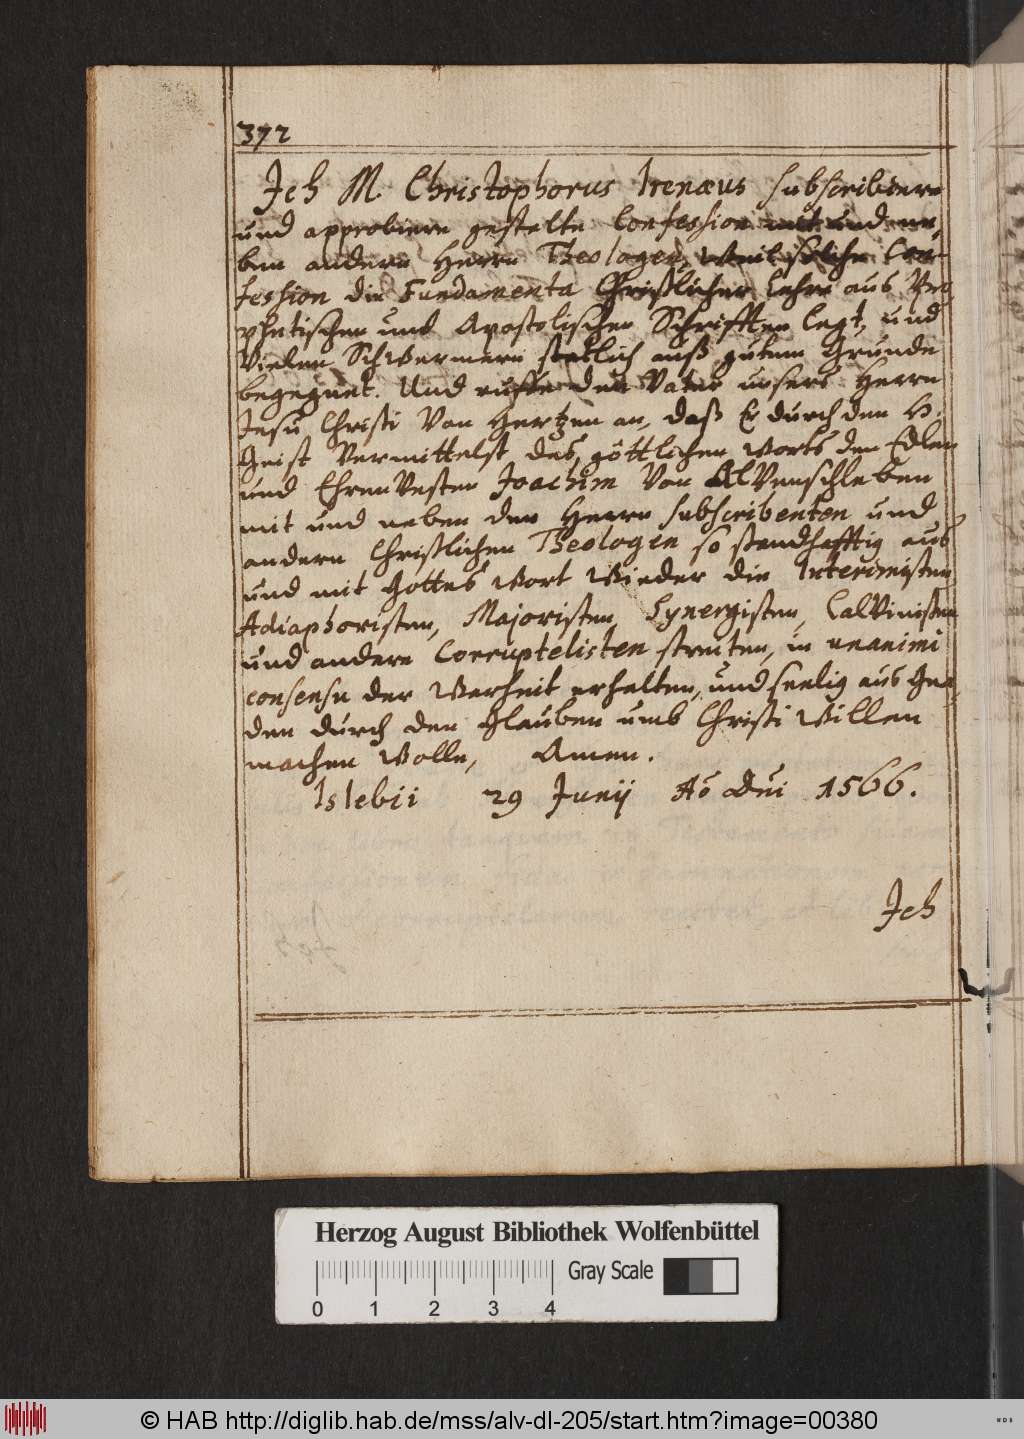 372
Ich M. Christophorus Irenæus subscribiere
und approbiere gestelte Confession mit und ne,
ben andern Herrn Theologen, Weil solche Con-
fession die Fundamenta Christlicher Lehre aus Pro,
phetischen und Apostolischen Schrifften legt, und
Vielen Schwermern statlich auß gutem Grunde
begegnet. Und ruffe den Vater unsers Herrn
Jesu Christi Von Hertzen an, daß Er durch den H.
Geist Vermittelst des göttlichen Worts den Edlen
und EhrenVesten Joachim Von AlVenschleben
mit und neben den Herrn subscribenten und
andern Christlichen Theologen so standhafftig aus
und mit Gottes Wort Wieder die Interimisten
Adiaphoristen, Majoristen, Synergisten, CalVinisten
und andere Corruptelisten streiten, in unanimi
consensu der Warheit erhalten, und seelig aus Gna,
den durch den Glauben umb Christi Willen
machen Wolle, Amen.
Islebii 29 Junij Aō Dni 1566.
Ich
Herzog August Bibliothek Wolfenbüttel
Gray Scale
0 1 2 3 4
© HAB http://diglib.hab.de/mss/alv-dl-205/start.htm?image=00380